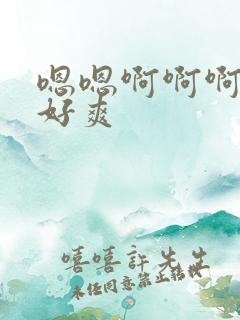 嗯嗯啊啊啊
好爽
嘻嘻許先生
未经同意禁止转载